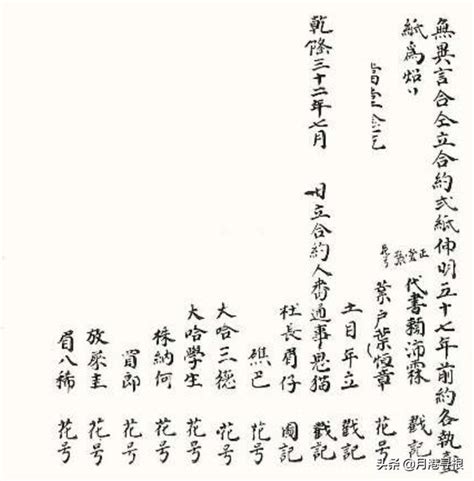 無異言合仝立合約弍紙俥明五十七年前約各執壹
紙爲炤
代書賴沛霖 戳記
業戶葉恒章 花号
土目年立 戳記
乾隆三十二年七月 日立合約人番通事思猫 戳記
社長眉仔 圖記
巴 花号
大哈三德 花号
大哈學生 花号
株納何 花号
眉郎 花号
放來圭 花号
眉八稀 花号
头条 @月港寻根